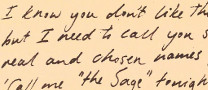 I know you don't like th
but I need to call you s
real and chosen names
'Call me "the Sage" tonigh